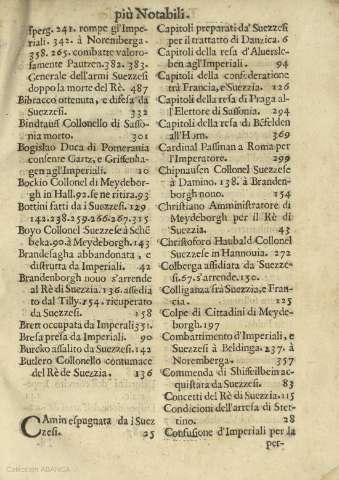 più Notabili.
sperg. 241. rompe gl'Impe-
riali. 342. à Noremberga.
358. 265. combatte valoro-
samente Pautzen. 382. 383.
Generale dell'armi Suezzesi
doppo la morte del Rè. 487
Bibracco ottenuta, e difesa da
Suezzesi. 332
Bindraiss Collonello di Sasso-
nia morto. 301
Bogislao Duca di Pomerania
consente Gartz, e Griffenha-
gen agl'Imperiali. 10
Bockio Collonel di Meydebor-
gh in Hall. 92. se ne ritira. 93
Bottini fatti da i Suezzesi. 129
142. 238. 259. 266. 267. 315
Boyo Collonel Suezzese à Schē
beka. 90. à Meydeborgh. 143
Brandesagha abbandonata, e
distrutta da Imperiali. 42
Brandenborgh nouo s'arrende
al Rè di Suezzia. 136. assedia
to dal Tilly. 154. ricuperato
da Suezzesi. 158
Brett occupata da Imperali 331.
Bresa presa da Imperiali. 90
Burcko assalito da Suezzesi. 142
Butlero Collonello contumace
del Rè de Suezzia. 136
CAmin espugnata da i Suez
zesi. 25
Capitoli preparati da' Suezzesi
per il trattato di Danzica. 6
Capitoli della resa d'Aluersle-
ben agl'Imperiali 94
Capitoli della confederatione
trà Francia, e Suezzia. 126
Capitoli della resa di Praga al-
l'Elettore di Sassonia. 294
Capitoli della resa di Besfelden
all'Horn. 369
Cardinal Passman a Roma per
l'Imperatore. 299
Chipnausen Collonel Suezzese
à Damino. 138. à Branden-
borgh nouo. 154
Christiano Amministratore di
Meydeborgh per il Rè di
Suezzia. 43
Christoforo Haubald Collonel
Suezzese in Hannouia. 272
Colberga assidiata da Suezze-
si. 67. s'arrende. 130.
Colliganza frà Suezzia, e Fran-
cia. 125
Colpe di Cittadini di Meyde-
borgh. 197
Combattimento d'Imperiali, e
Suezzesi à Beldinga. 237. à
Noremberga. 357
Commenda di Shiffeilbein ac-
quistara da Suezzesi. 83
Concetti del Rè di Suezzia. 115
Condicioni dell'arresa di Stet-
tino. 28
Confusione d'Imperiali per la
per-
Colección ABANCA